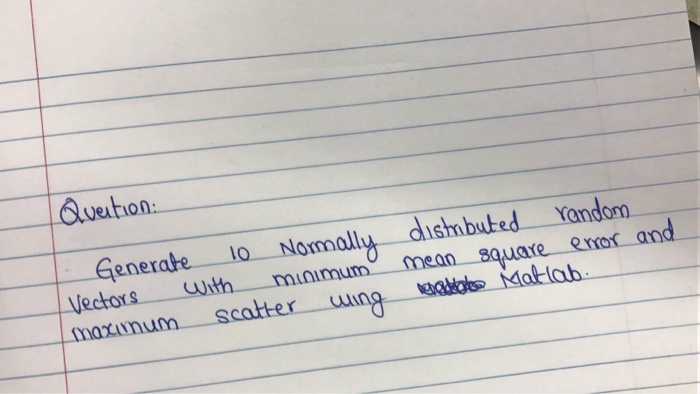 Question:
Generate 10 Normally distributed random
Vectors with minimum mean square error and
maximum scatter using Matlab.